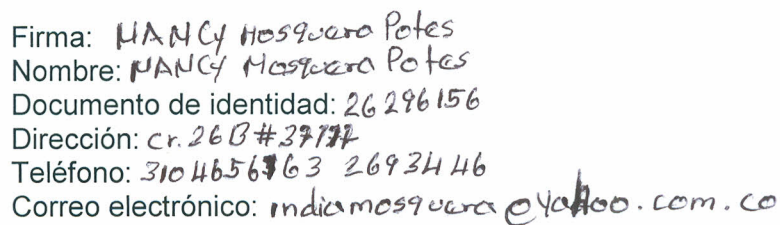 Firma: NANCY Mosquera Potes
Nombre: NANCY Mosquera Potes
Documento de identidad: 26296156
Dirección: cr. 26B #
Teléfono: 2693446
Correo electrónico: indiamosquera@yahoo.com.co